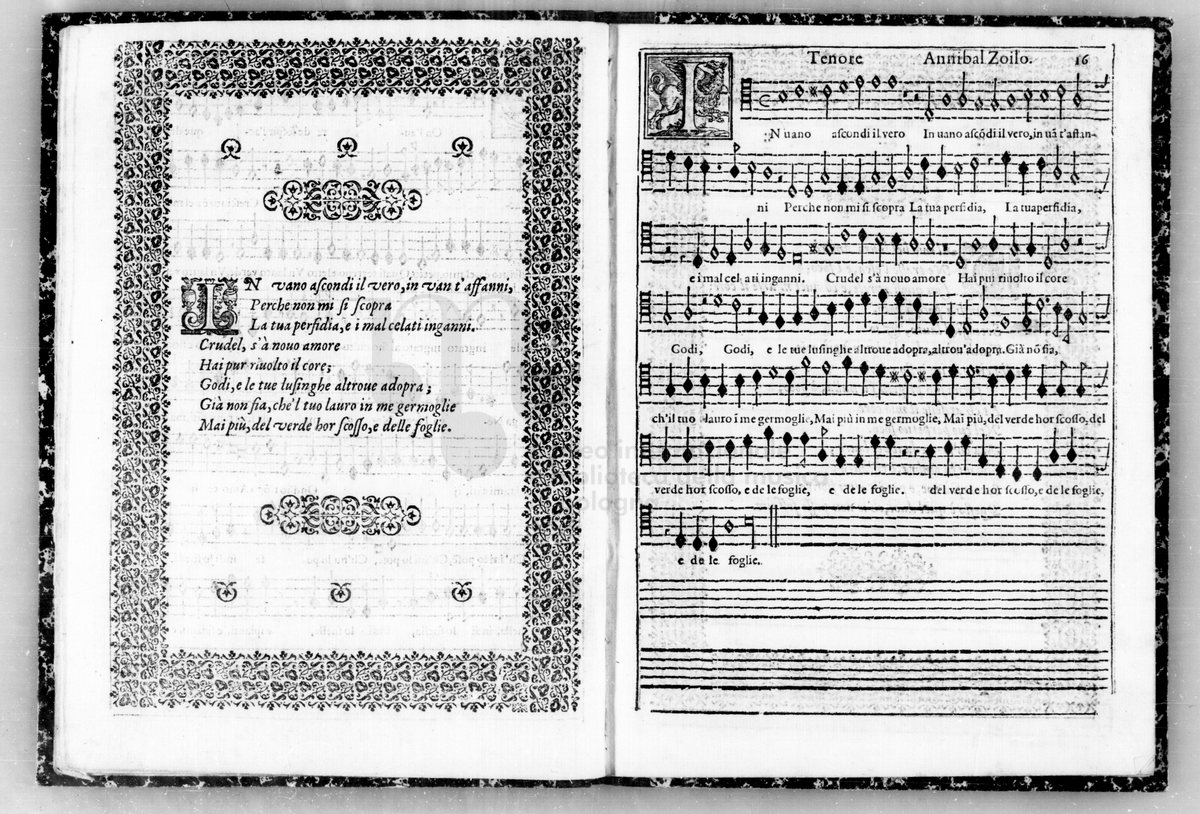 IN vano ascondi il vero, in van t'affanni,
Perche non mi si scopra
La tua perfidia, e i mal celati inganni.
Crudel, s'à nouo amore
Hai pur riuolto il core;
Godi, e le tue lusinghe altroue adopra;
Già non fia, che'l tuo lauro in me germoglie
Mai più, del verde hor scosso, e delle foglie.
Tenore Annibal Zoilo. 16
IN uano ascondi il vero In uano ascōdi il vero, in uā t'affan-
ni Perche non mi si scopra La tua perfidia, La tua perfidia,
e i mal celati inganni. Crudel s'à nouo amore Hai pur riuolto il core
Godi, Godi, e le tue lusinghe altroue adopra, altrou'adopra. Già nō fia,
ch'il tuo lauro ī me germoglie, Mai più in me germoglie, Mai più, del verde hor scosso, del
verde hor scosso, e de le foglie, e de le foglie. del verde hor scosso, e de le foglie,
e de le foglie.
museo internazionale
biblioteca della musica
bologna